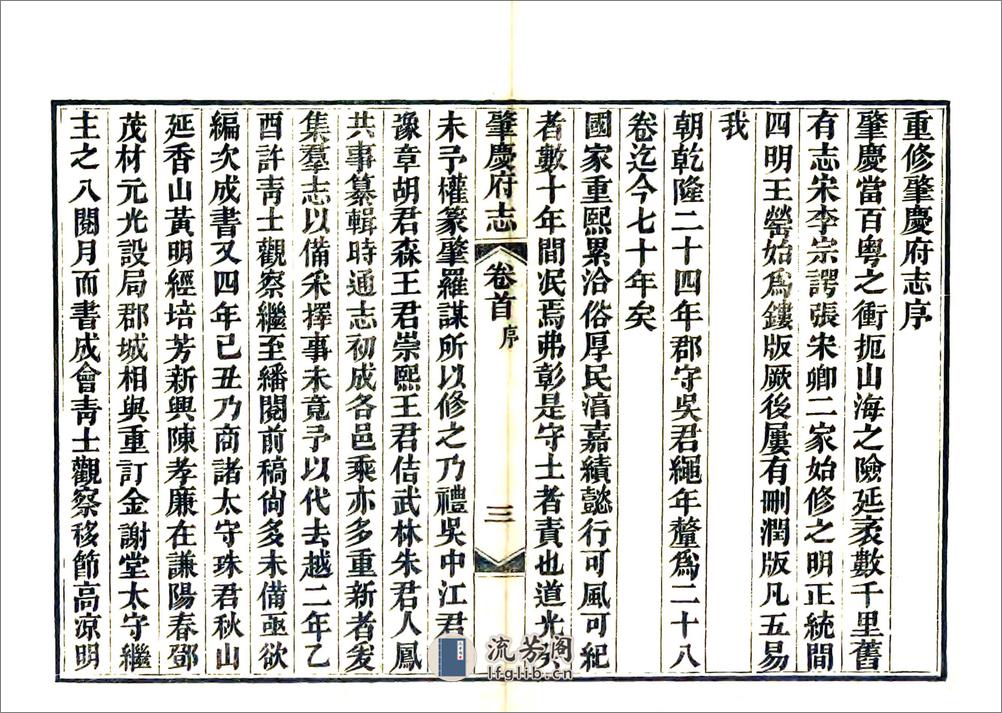 重修肇慶府志序
肇慶當百粵之衝扼山海之險延袤數千里舊
有志宋李宗諤張宋卿二家始修之明正統間
四明王罃始爲鏤版厥後屢有刪潤版凡五易
我
朝乾隆二十四年郡守吳君繩年釐爲二十八
卷迄今七十年矣
國家重熙累洽俗厚民淯嘉績懿行可風可紀
者數十年間泯焉弗彰是守土者責也道光癸
肇慶府志
卷首
序
三
未予權篆肇羅謀所以修之乃禮吳中江君
豫章胡君森王君崇熙王君佶武林朱君人鳳
共事纂輯時通志初成各邑乘亦多重新者爰
集羣志以備采擇事未竟予以代去越二年乙
酉許青士觀察繼至繙閱前稿尙多未備亟欲
編次成書又四年己丑乃商諸太守珠君秋山
延香山黃明經培芳新興陳孝廉在謙陽春鄧
茂材元光設局郡城相與重訂金謝堂太守繼
主之八閱月而書成會靑士觀察移節高凉明
流芳阁
lfglib.cn